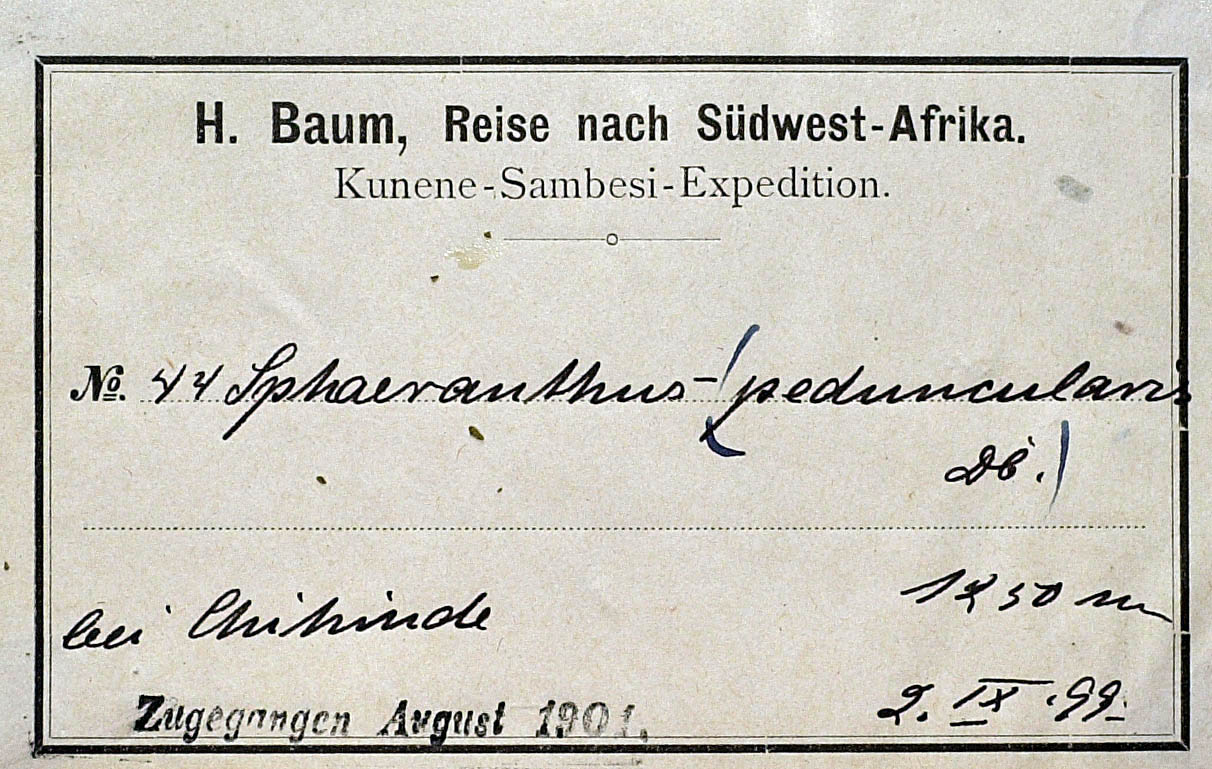 H. Baum, Reise nach Südwest-Afrika.
Kunene-Sambesi-Expedition.
No. 44 Sphaeranthus - (peduncularis
DC.)
bei Chihinde 1250 m
Zugegangen August 1901. 2. IX. 99.